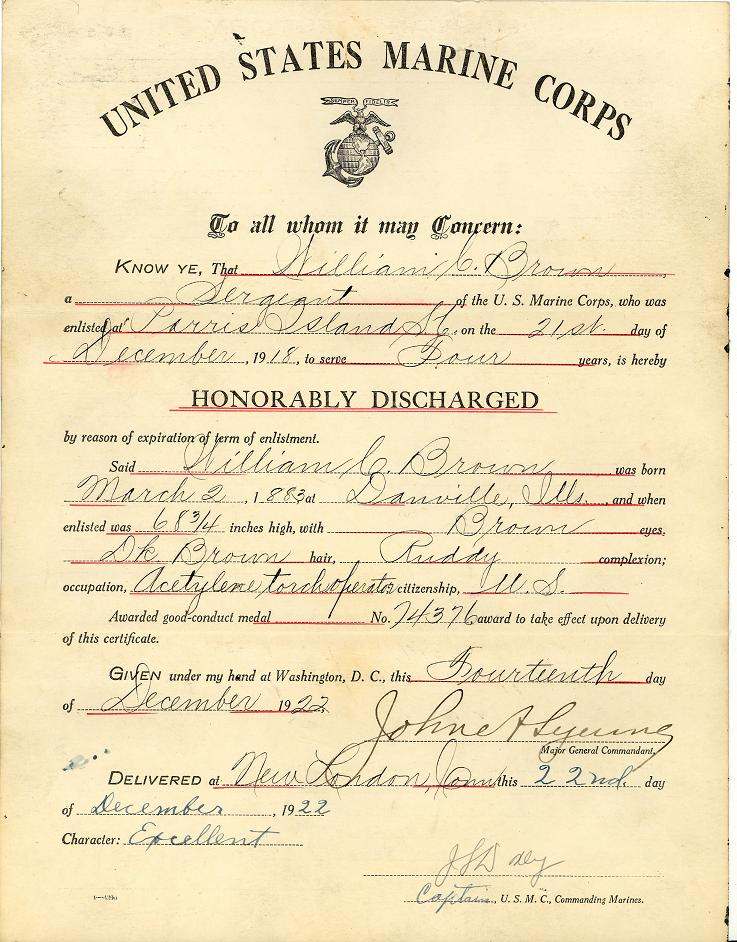 UNITED STATES MARINE CORPS
SEMPER FIDELIS
To all whom it may Concern:
KNOW YE, That William C. Brown,
a Sergeant of the U. S. Marine Corps, who was
enlisted at Parris Island S.C. on the 21st. day of
December, 1918, to serve Four years, is hereby
HONORABLY DISCHARGED
by reason of expiration of term of enlistment.
Said William C. Brown was born
March 2, 1883 at Danville, Ills., and when
enlisted was 68 3/4 inches high, with Brown eyes,
Dk Brown hair, Ruddy complexion;
occupation, Acetylene torch operator citizenship, U. S.
Awarded good-conduct medal No. 74376 award to take effect upon delivery
of this certificate.
GIVEN under my hand at Washington, D. C., this Fourteenth day
of December 1922
John A Lejeune
Major General Commandant.
DELIVERED at New London, Conn, this 22nd. day
of December, 1922
Character: Excellent
Captain, U. S. M. C., Commanding Marines.